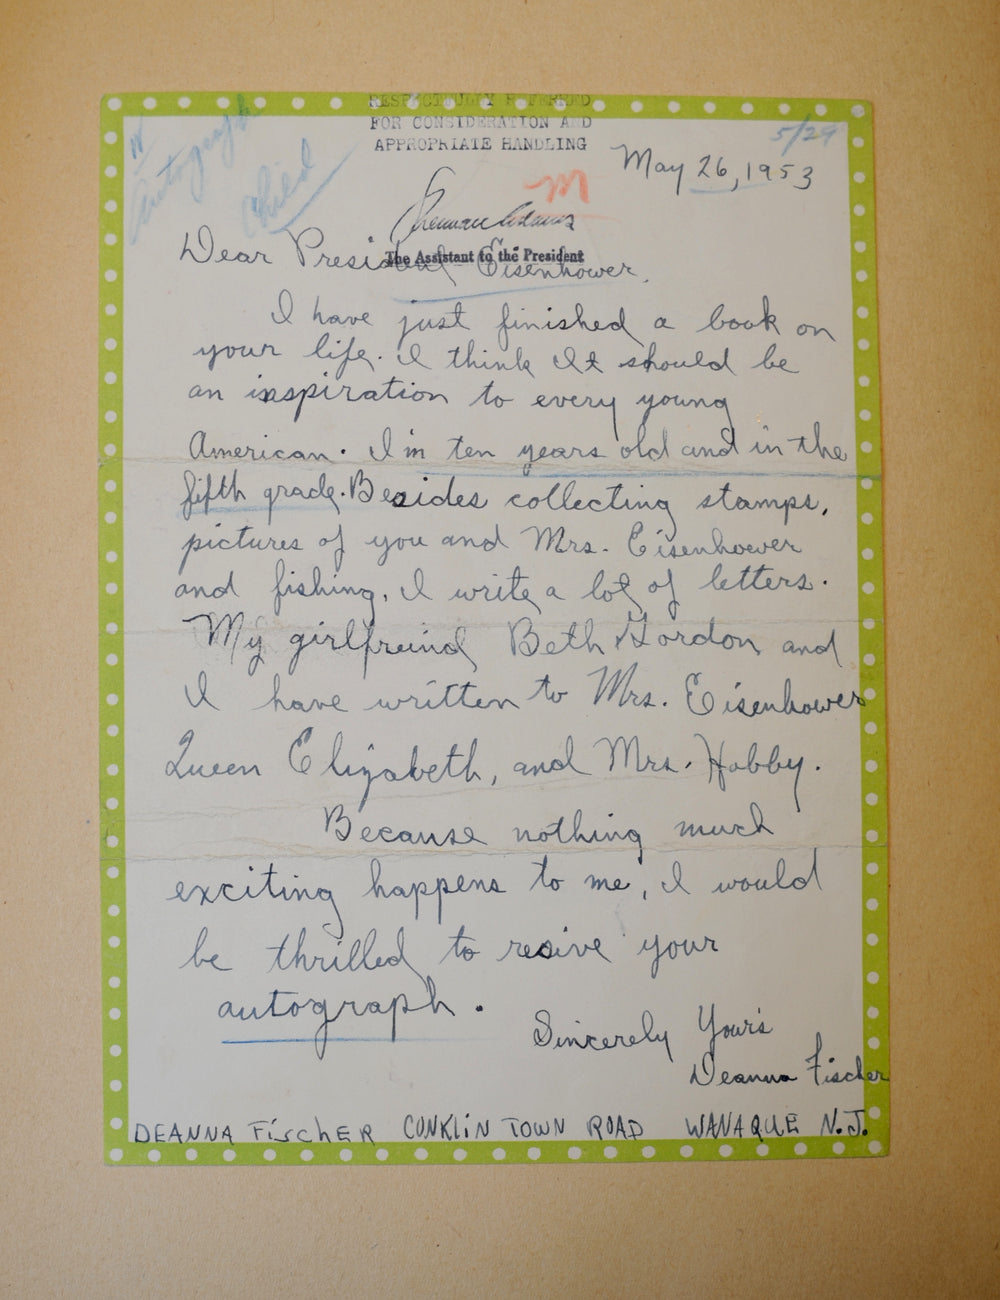 RESPECTFULLY REFERRED
FOR CONSIDERATION AND
APPROPRIATE HANDLING
5/29
Autograph
Child
May 26, 1953
M
Sherman Adams
The Assistant to the President
Dear President Eisenhower,
I have just finished a book on
your life. I think It should be
an inspiration to every young
American. I'm ten years old and in the
fifth grade. Besides collecting stamps,
pictures of you and Mrs. Eisenhower
and fishing, I write a lot of letters.
My girlfreind Beth Gordon and
I have written to Mrs. Eisenhower
Queen Elizabeth, and Mrs. Hobby.
Because nothing much
exciting happens to me, I would
be thrilled to resive your
autograph.
Sincerely Your's
Deanna Fischer
DEANNA FiscHER CONKLiN TOWN ROAD WANAQUE N.J.